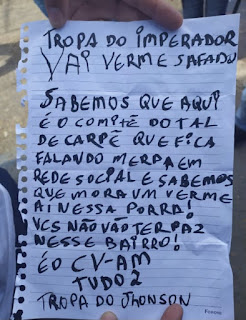 TROPA DO IMPERADOR
VAI VERME SAFADO
SABEMOS QUE AQUI
É O COMITÊ DO TAL
DE CARPÊ QUE FICA
FALANDO MERDA EM
REDE SOCIAL E SABEMOS
QUE MORA UM VERME
AI NESSA PORRA!
VCS NÃO VÃO TER PAZ
NESSE BAIRRO!
É O CV-AM
TUDO 2
TROPA DO JHONSON